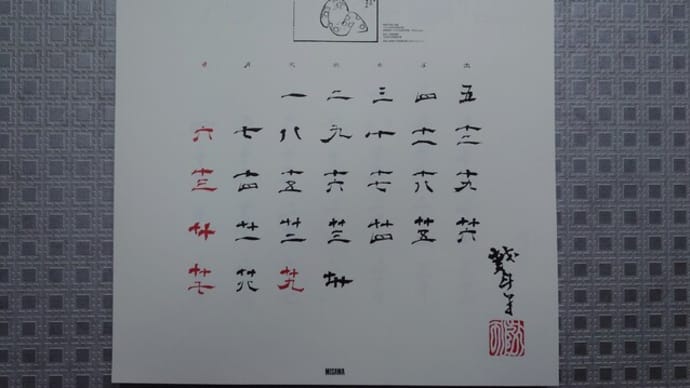 日 月 火 水 木 金 土
一 二 三 四 五
六 七 八 九 十 十一 十二
十三 十四 十五 十六 十七 十八 十九
廿 廿一 廿二 廿三 廿四 廿五 廿六
廿七 廿八 廿九 卅
MISAWA